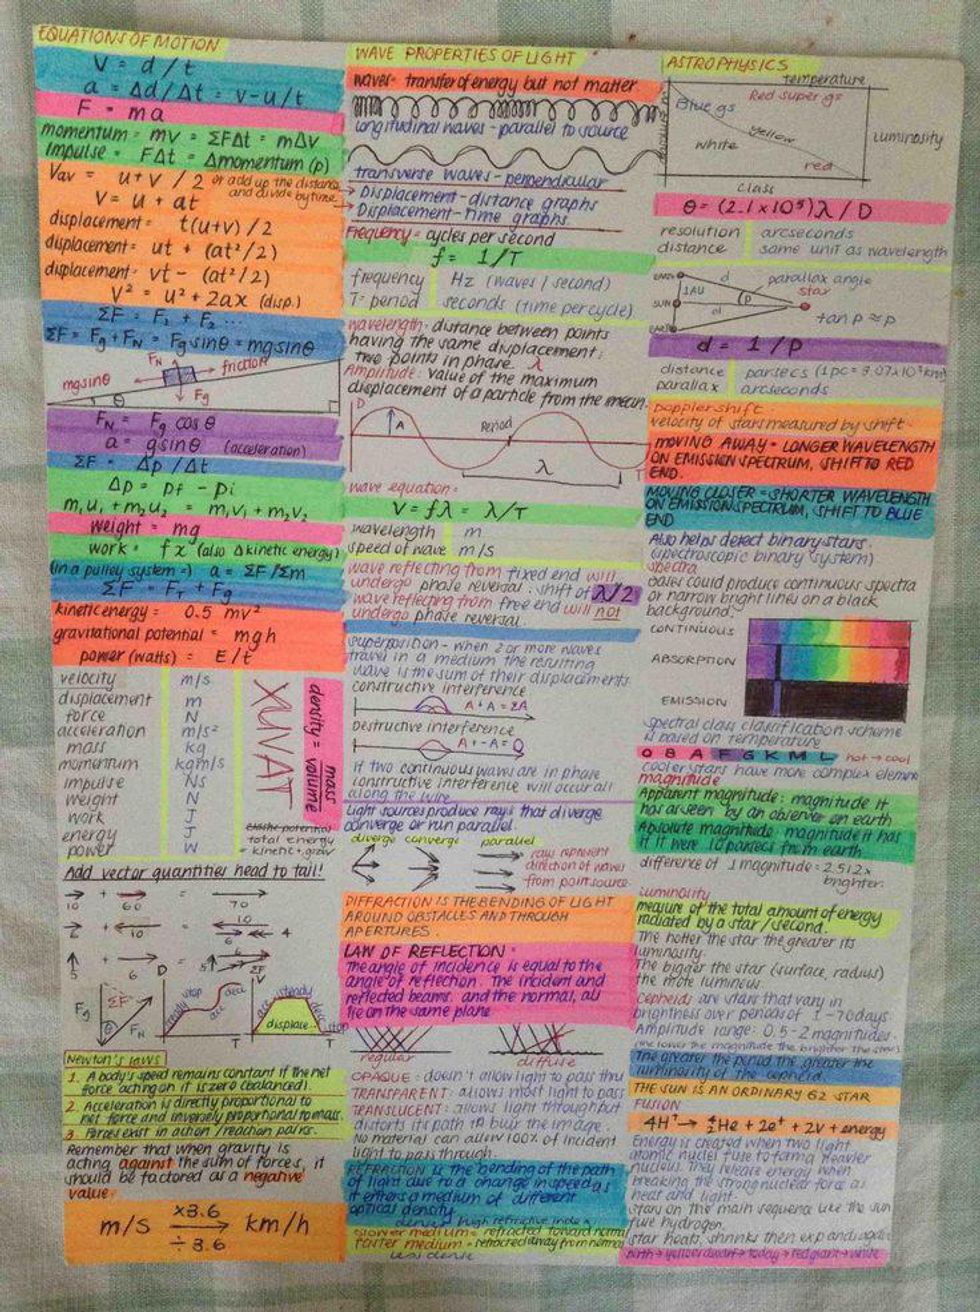 EQUATIONS OF MOTION
V = d/t
a = Δd/Δt = v-u/t
F = ma
momentum = mv = ΣFΔt = mΔv
Impulse = FΔt = Δmomentum (p)
Vav = u+v /2 or add up the distance
and divide by time
V = u + at
displacement = t(u+v)/2
displacement = ut + (at²/2)
displacement = vt - (at²/2)
V² = u² + 2ax (disp.)
ΣF = F₁ + F₂ ...
ΣF = Fg + FN = Fg sinθ = mg sinθ
FN
friction
mg sinθ
θ
Fg
FN = Fg cosθ
a = g sinθ (acceleration)
ΣF = Δp/Δt
Δp = pf - pi
m₁u₁ + m₂u₂ = m₁v₁ + m₂v₂
weight = mg
work = fx (also Δkinetic energy)
(in a pulley system →) a = ΣF/Σm
ΣF = FT + Fg
kinetic energy = 0.5 mv²
gravitational potential = mgh
power (watts) = E/t
velocity m/s
displacement m
force N
acceleration m/s²
mass kg
momentum kgm/s
impulse Ns
weight N
work J
energy J
power W
XUVAT
density = mass
volume
elastic potential
total energy
= kinetic + grav
Add vector quantities head to tail!
10 + 60 = 70
2 + 10 = 10
6 4
5 + 6 = 5 6
Fg ΣF FN θ
D steady stop acc decc T
V acc steady decc stop
displace.. T
ΣF
Newton's laws
1. A body's speed remains constant if the net
force acting on it is zero (balanced).
2. Acceleration is directly proportional to
net force and inversely proportional to mass.
3 Forces exist in action/reaction pairs.
Remember that when gravity is
acting against the sum of forces, it
should be factored as a negative
value.
m/s ×3.6 km/h
÷3.6
WAVE PROPERTIES OF LIGHT
waves = transfer of energy but not matter.
longitudinal waves - parallel to source
transverse waves - perpendicular
→ Displacement-distance graphs
→ Displacement-time graphs.
Frequency = cycles per second
f = 1/T
frequency Hz (waves/second)
T= period seconds (time per cycle)
wavelength = distance between points
having the same displacement;
two points in phase. λ
Amplitude: value of the maximum
displacement of a particle from the mean.
D A Period λ T
wave equation =
V = fλ = λ/T
wavelength m
speed of wave m/s
wave reflecting from fixed end will
undergo phase reversal. shift of λ/2
wave reflecting from free end will not
undergo phase reversal.
superposition - when 2 or more waves
travel in a medium the resulting
wave is the sum of their displacements.
constructive interference
A+A = 2A
Destructive interference
A+-A = 0
if two continuous waves are in phase
constructive interference will occur all
along the wire
Light sources produce rays that diverge
converge or run parallel.
diverge converge parallel
rays represent
direction of waves
from point source.
DIFFRACTION IS THE BENDING OF LIGHT
AROUND OBSTACLES AND THROUGH
APERTURES.
LAW OF REFLECTION =
The angle of incidence is equal to the
angle of reflection. The incident and
reflected beams, and the normal, all
lie on the same plane
regular diffuse
OPAQUE: doesn't allow light to pass thru
TRANSPARENT: allows most light to pass
TRANSLUCENT: allows light through but
distorts its path to blur the image.
No material can allow 100% of incident
light to pass through.
REFRACTION is the bending of the path
of light due to a change in speed as
it enters a medium of different
optical density.
dense high refractive index
slower medium = refracted toward normal
faster medium = refracted away from normal
less dense
ASTROPHYSICS
temperature
Blue gs Red super gs
white yellow red
luminosity
class
θ = (2.1×10⁵)λ/D
resolution arcseconds
distance same unit as wavelength
EARTH
1AU
SUN
EARTH
d
d
p
parallax angle
star
tan p ≈ p
d = 1/P
distance parsecs
parallax arcseconds
Doppler shift -
velocity of stars measured by shift -
MOVING AWAY = LONGER WAVELENGTH
ON EMISSION SPECTRUM, SHIFT TO RED
END.
MOVING CLOSER = SHORTER WAVELENGTH
ON EMISSION SPECTRUM, SHIFT TO BLUE
END
Also helps detect binary stars.
(spectroscopic binary system)
spectra
gases could produce continuous spectra
or narrow bright lines on a black
background.
CONTINUOUS
ABSORPTION
EMISSION
spectral class classification scheme
is based on temperature
O B A F G K M L hot → cool
cooler stars have more complex
magnitude
Apparent magnitude: magnitude it
has as seen by an observer on earth
Absolute magnitude: magnitude it has
if it were 10 parsecs from earth
difference of 1 magnitude = 2.512×
brighter.
luminosity
measure of the total amount of energy
radiated by a star/second.
The hotter the star the greater its
luminosity.
The bigger the star (surface, radius)
the more luminous.
Cepheids are stars that vary in
brightness over periods of 1-70days
Amplitude range: 0.5-2 magnitudes
(the lower the magnitude the brighter the star)
The greater the period the greater the
luminosity of the cepheid.
THE SUN IS AN ORDINARY G2 STAR
FUSION
4H⁺ → ⁴₂He + 2e⁺ + 2V + energy
Energy is created when two light
atomic nuclei fuse to form a heavier
nucleus. They release energy when
breaking the strong nuclear force as
heat and light.
stars on the main sequence like the sun
fuse hydrogen.
star heats, shrinks then expands again
birth → yellow dwarf → today → red giant → white